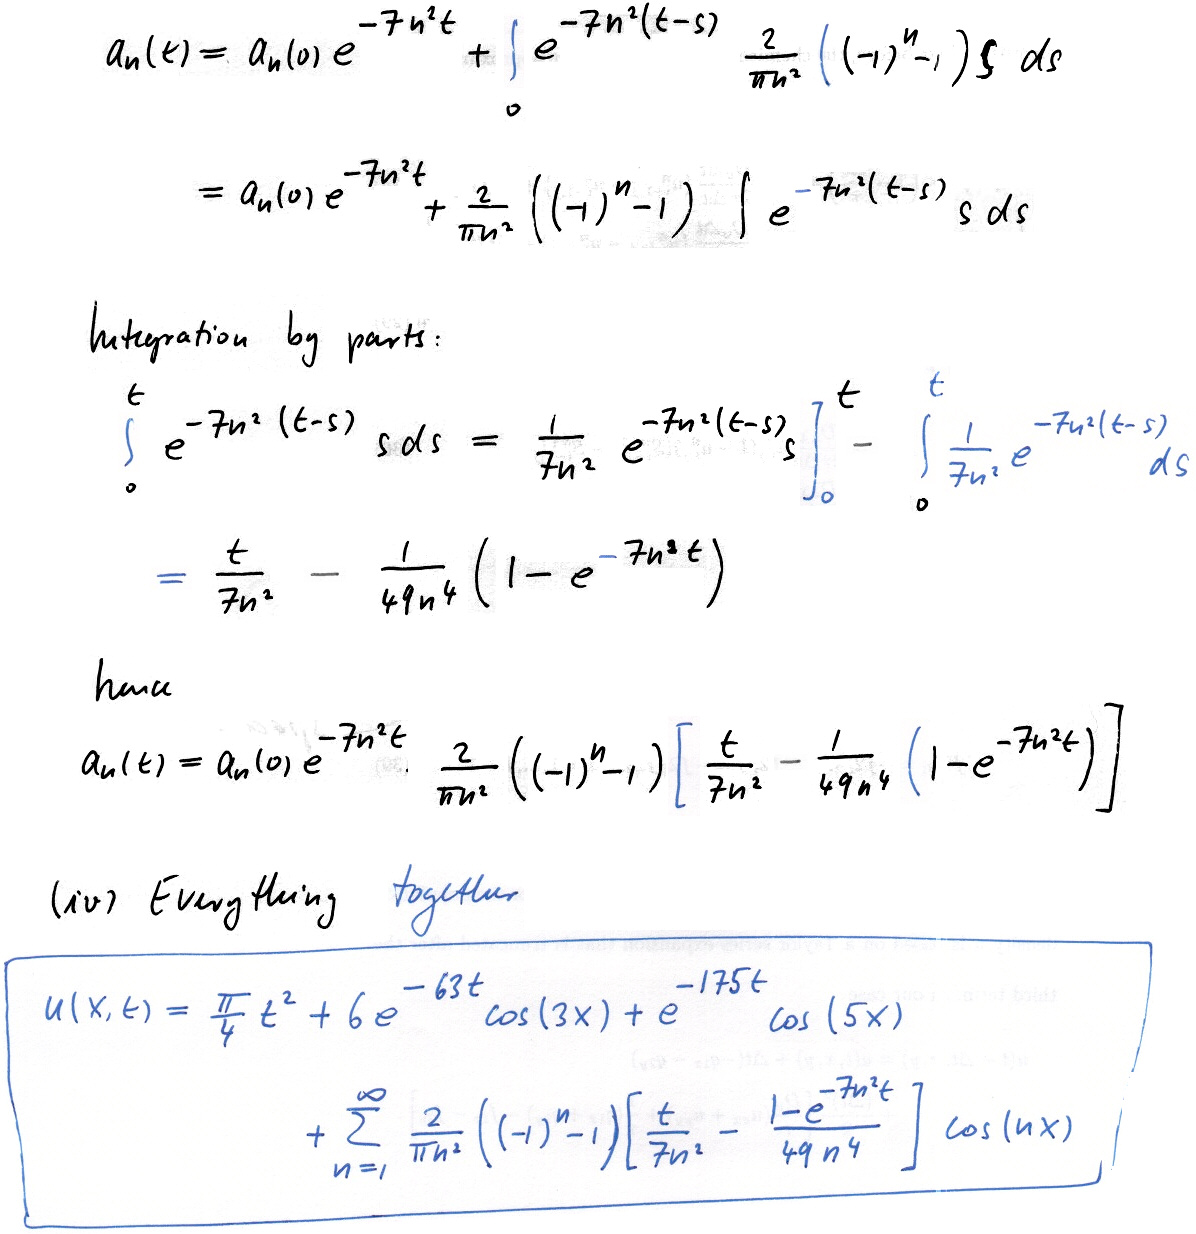 aₙ(t) = aₙ(0) e^{-7n²t} + ∫₀ e^{-7n²(t-s)} 2/(πn²) ((-1)ⁿ-1) s ds
= aₙ(0) e^{-7n²t} + 2/(πn²) ((-1)ⁿ-1) ∫ e^{-7n²(t-s)} s ds
Integration by parts:
∫₀ᵗ e^{-7n²(t-s)} s ds = 1/(7n²) e^{-7n²(t-s)} s]₀ᵗ - ∫₀ᵗ 1/(7n²) e^{-7n²(t-s)} ds
= t/(7n²) - 1/(49n⁴) (1 - e^{-7n²t})
hence
aₙ(t) = aₙ(0) e^{-7n²t}. 2/(πn²) ((-1)ⁿ-1) [t/(7n²) - 1/(49n⁴) (1-e^{-7n²t})]
(iv) Everything together
u(x,t) = π/4 t² + 6e^{-63t} cos(3x) + e^{-175t} cos(5x)
+ ∑_{n=1}^{∞} 2/(πn²) ((-1)ⁿ-1) [t/(7n²) - (1-e^{-7n²t})/(49n⁴)] cos(nx)